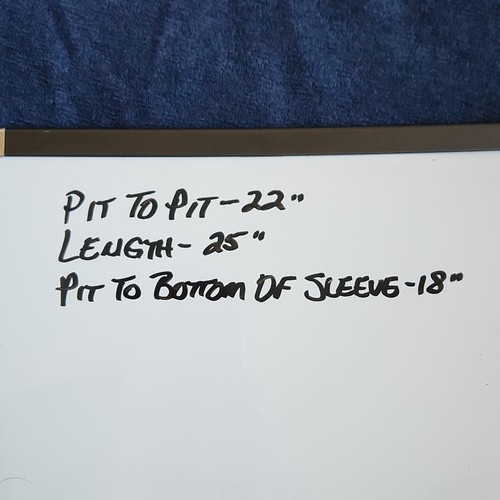 PIT TO PIT-22"
LENGTH-25"
PIT TO BOTTOM OF SLEEVE-18"